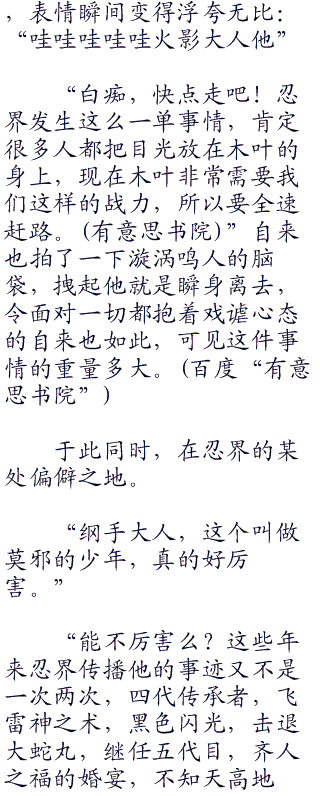 ，表情瞬间变得浮夸无比：
“哇哇哇哇哇火影大人他”
“白痴，快点走吧！忍
界发生这么一单事情，肯定
很多人都把目光放在木叶的
身上，现在木叶非常需要我
们这样的战力，所以要全速
赶路。(有意思书院)”自来
也拍了一下漩涡鸣人的脑
袋，拽起他就是瞬身离去，
令面对一切都抱着戏谑心态
的自来也如此，可见这件事
情的重量多大。(百度“有意
思书院”)
于此同时，在忍界的某
处偏僻之地。
“纲手大人，这个叫做
莫邪的少年，真的好厉
害。”
“能不厉害么？这些年
来忍界传播他的事迹又不是
一次两次，四代传承者，飞
雷神之术，黑色闪光，击退
大蛇丸，继任五代目，齐人
之福的婚宴，不知天高地